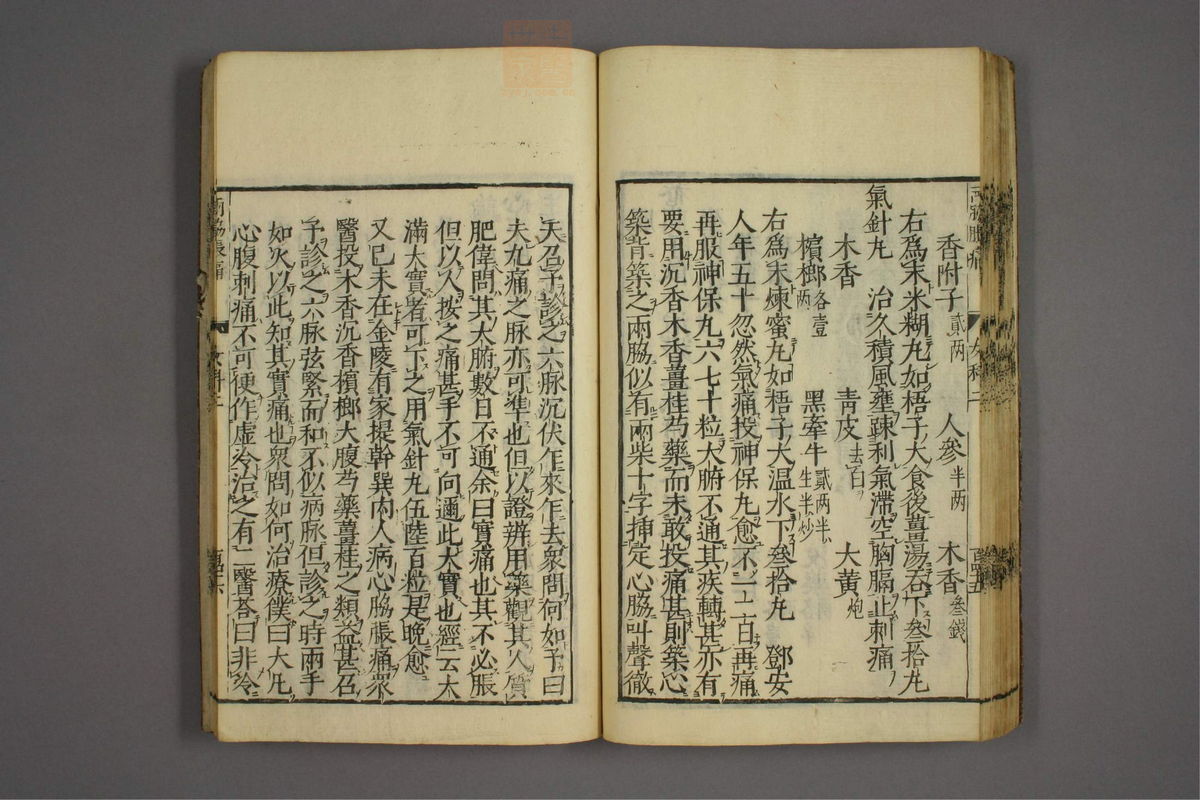 香附子貳両 人參半両 木香叁錢
右爲末米糊丸如梧子大食後薑湯吞下叁拾丸
氣針丸 治久積風壅疎利氣滯空胸膈止刺痛
木香 青皮去白 大黄炮
檳榔各壹両 黑牽牛貳両半生半炒
右爲末煉蜜丸如梧子大温水下叁拾丸 鄧安
人年五十忽然氣痛投神保丸愈不一二百再痛
再服神保丸六七十粒大腑不通其疾轉甚亦有
要用沉香木香薑桂芍藥而未敢投痛甚則築心
築背築之兩脇似有兩柴十字挿定心脇叫聲徹
天召予診之六脉沉伏乍來乍去衆問何如予曰
夫九痛之脉亦可準也但以證辨用藥觀其人質
肥偉問其大腑數日不通余曰實痛也其不必脹
但以人按之痛甚手不可向邇此大實也經云大
滿大實者可下之用氣針丸伍陸百粒是晚愈
又己未在金陵有家提幹巽内人病心脇脹痛衆
醫投木香沉香檳榔大腹芍藥薑桂之類益甚召
予診之六脉弦緊而和不似病脉但診之時兩手
如火以此知其實痛也衆問如何治療僕曰大凡
心腹刺痛不可便作虛冷治之有一醫荅曰非冷
兩脇脹痛 女科二